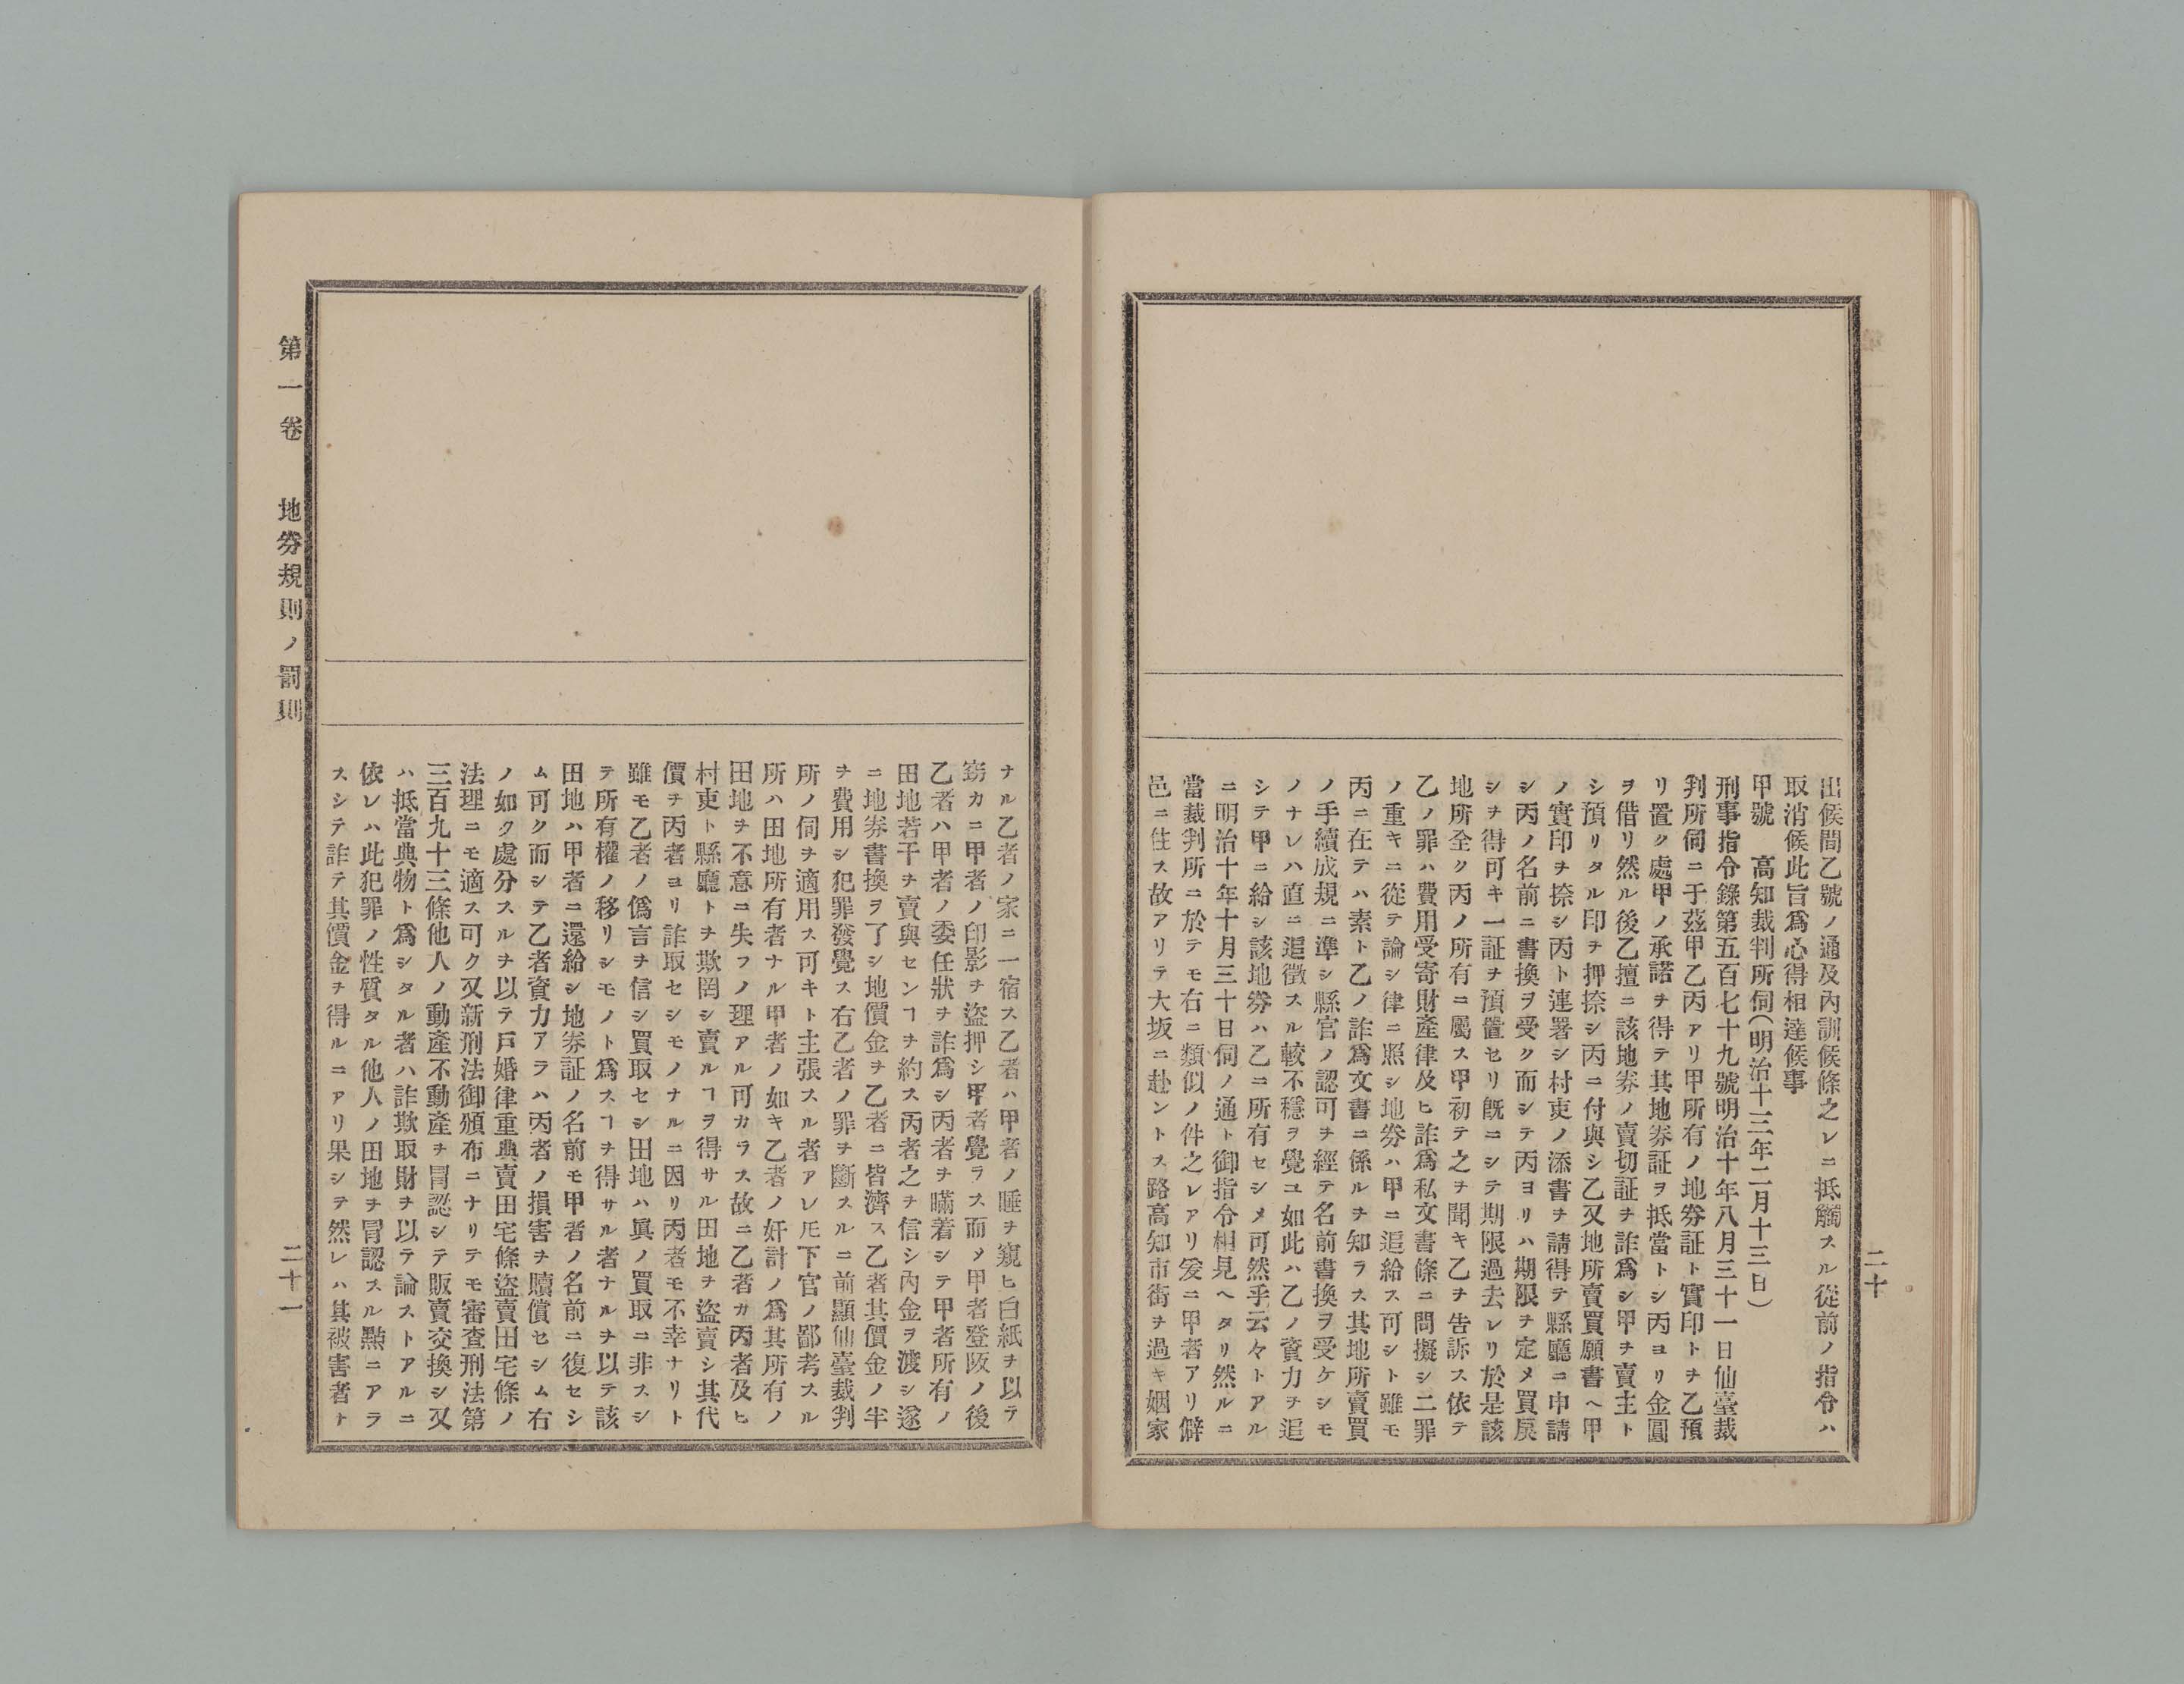 二十
出候間乙號ノ通及內訓候條之レニ抵觸スル從前ノ指令ハ
取消候此旨爲心得相達候事
甲號　高知裁判所伺(明治十三年二月十三日)
刑事指令錄第五百七十九號明治十年八月三十一日仙臺裁
判所伺ニ于茲甲乙丙アリ甲所有ノ地券証ト實印トヲ乙預
リ置ク處甲ノ承諾ヲ得テ其地券証ヲ抵當トシ丙ヨリ金圓
ヲ借リ然ル後乙擅ニ該地券ノ賣切証ヲ詐爲シ甲ヲ賣主ト
シ預リタル印ヲ押捺シ丙ニ付與シ乙又地所賣買願書ヘ甲
ノ實印ヲ捺シ丙ト連署シ村吏ノ添書ヲ請得テ縣廳ニ申請
シ丙ノ名前ニ書換ヲ受ク而シテ丙ヨリハ期限ヲ定メ買戾
シヲ得可キ一証ヲ預置セリ旣ニシテ期限過去レリ於是該
地所全ク丙ノ所有ニ屬ス甲初テ之ヲ聞キ乙ヲ告訴ス依テ
乙ノ罪ハ費用受寄財產律及ヒ詐爲私文書條ニ問擬シ二罪
ノ重キニ從テ論シ律ニ照シ地券ハ甲ニ追給ス可シト雖モ
丙ニ在テハ素ト乙ノ詐爲文書ニ係ルヲ知ラス其地所賣買
ノ手續成規ニ準シ縣官ノ認可ヲ經テ名前書換ヲ受ケシモ
ノナレハ直ニ追徵スル較不穩ヲ覺ユ如此ハ乙ノ資力ヲ追
シテ甲ニ給シ該地券ハ乙ニ所有セシメ可然乎云々トアル
ニ明治十年十月三十日伺ノ通ト御指令相見ヘタリ然ルニ
當裁判所ニ於テモ右ニ類似ノ件之レアリ爰ニ甲者アリ僻
邑ニ住ス故アリテ大坂ニ赴ントス路高知市街ヲ過キ姻家
ナル乙者ノ家ニ一宿ス乙者ハ甲者ノ睡ヲ窺ヒ白紙ヲ以テ
窃カニ甲者ノ印影ヲ盜押シ甲者覺ラス而メ甲者登阪ノ後
乙者ハ甲者ノ委任狀ヲ詐爲シ丙者ヲ瞞着シテ甲者所有ノ
田地若干ヲ賣與センヿヲ約ス丙者之ヲ信シ內金ヲ渡シ遂
ニ地券書換ヲ了シ地價金ヲ乙者ニ皆濟ス乙者其價金ノ半
ヲ費用シ犯罪發覺ス右乙者ノ罪ヲ斷スルニ前顯仙臺裁判
所ノ伺ヲ適用ス可キト主張スル者アレ𪜈下官ノ鄙考スル
所ハ田地所有者ナル甲者ノ如キ乙者ノ奸計ノ爲其所有ノ
田地ヲ不意ニ失フノ理アル可カラス故ニ乙者カ丙者及ヒ
村吏ト縣廳トヲ欺罔シ賣ルヿヲ得サル田地ヲ盜賣シ其代
價ヲ丙者ヨリ詐取セシモノナルニ因リ丙者モ不幸ナリト
雖モ乙者ノ僞言ヲ信シ買取セシ田地ハ眞ノ買取ニ非スシ
テ所有權ノ移リシモノト爲スヿヲ得サル者ナルヲ以テ該
田地ハ甲者ニ還給シ地券証ノ名前モ甲者ノ名前ニ復セシ
ム可ク而シテ乙者資力アラハ丙者ノ損害ヲ贖償セシム右
ノ如ク處分スルヲ以テ戸婚律重典賣田宅條盜賣田宅條ノ
法理ニモ適ス可ク又新刑法御頒布ニナリテモ審查刑法第
三百九十三條他人ノ動產不動產ヲ冐認シテ販賣交換シ又
ハ抵當典物ト爲シタル者ハ詐欺取財ヲ以テ論ストアルニ
依レハ此犯罪ノ性質タル他人ノ田地ヲ冐認スル㸃ニアラ
スシテ詐テ其價金ヲ得ルニアリ果シテ然レハ其被害者ナ
第一卷　地券規則ノ罰則
二十一